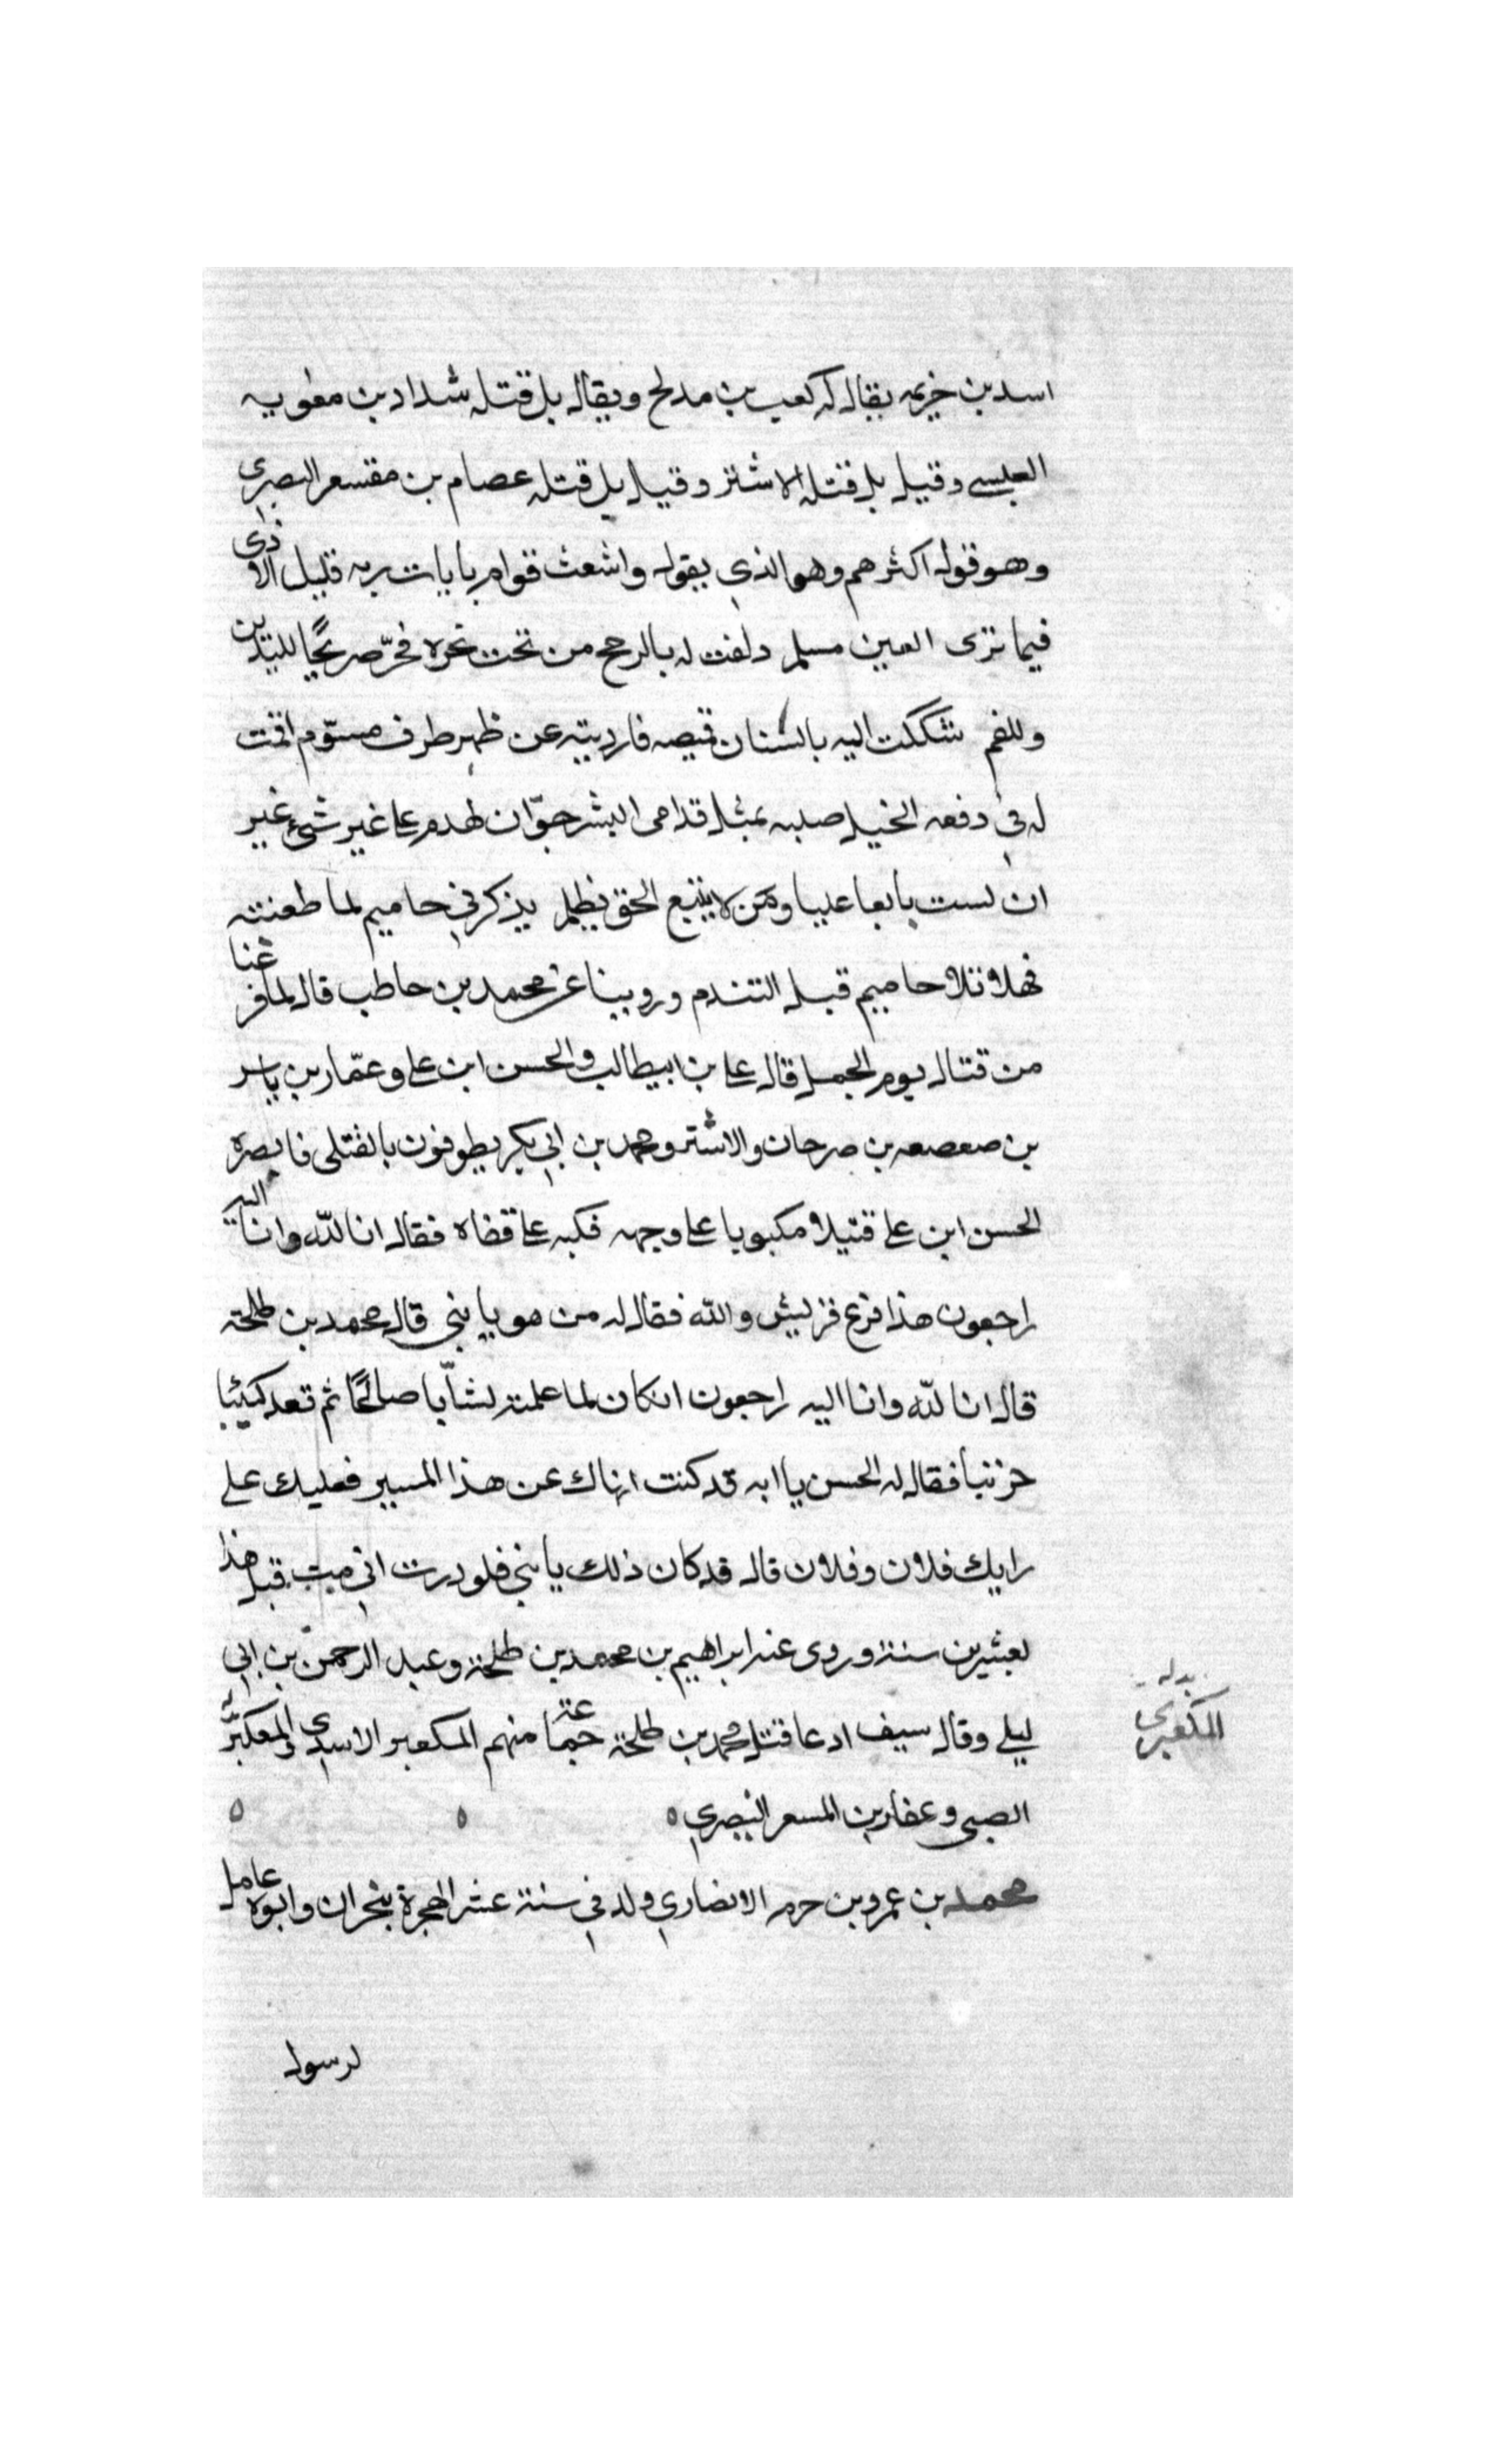 اسد بن خزيمه يقال له كعب بن مدلج ويقال بل قتله شداد بن معوية
العبسي وقيل بل قتله الاشتر وقيل بل قتله عصام بن مقسعر البصري
وهو قول اكثرهم وهو الذي يقول واشعث قوام بايات ربه قليل الاذى
فيما ترى العين مسلم دلفت له بالرمح من تحت نحره فخرّ صريعًا لليدين
وللفم شككت اليه بالسنان قميصه فارديته عن ظهر طرف مسوّم اقمت
له في دفعه الخيل صلبه بمثل قدامى النسر حرّان لهدم على غير شيء غير
ان ليس تابعا عليا ومن لا يتبع الحق يظلم يذكرني حاميم لما طعنته
فهلا تلا حاميم قبل التندم وروينا عن محمد بن حاطب قال لما فرغنا
من قتال يوم الجمل قال على بن ابيطالب والحسن ابن على وعمّار بن ياسر
بن صعصعه بن صرحان والاشتر ومحمد بن ابي بكر يطوفون بالقتلى فابصره
الحسن ابن على قتيلا مكبوبا على وجهه فكبه على قفاه فقال انا للّه وانا اليه
راجعون هذا فرع قريش واللّه فقال له من هو يا بني قال محمد بن طلحة
قال انا للّه وانا اليه راجعون ان كان لما علمته لشابّا صالحًا ثم قعد كئيبا
حزينا فقال له الحسن يا ابه قد كنت انهاك عن هذا المسير فغلبك على
رايك فلان وفلان قال قد كان ذلك يا بني فلوددت اني مت قبل هذا
بعشرين سنة وروى عنه ابراهيم بن محمد بن طلحة وعبد الرحمن بن ابي
ليلى وقال سيف ادعا قتل محمد بن طلحة جماعة منهم المكعبر الاسدي والمعكبر
الضبي وعفار بن المسعر النصري
بدله
المكعبري
محمد بن عمرو بن حزم الانصاري ولد في سنة عشر الهجرة بنجران وابوه عامل
لرسول